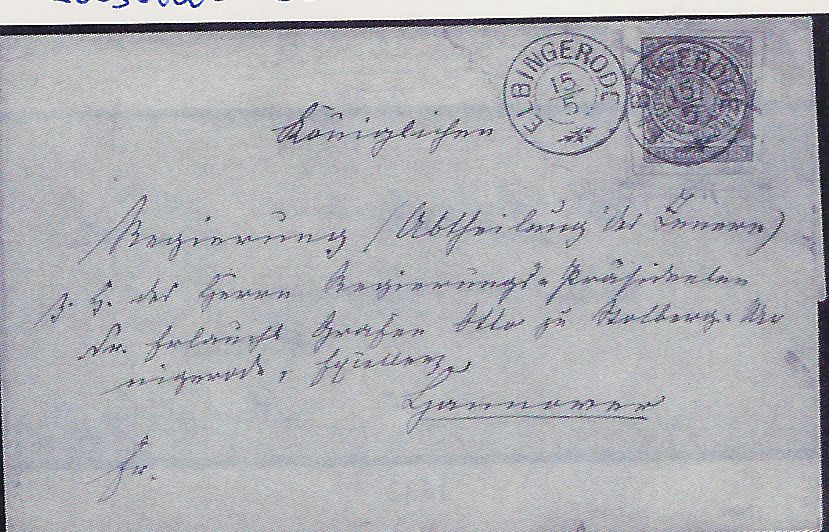 ELBINGERODE 15/5
ELBINGERODE 15/5
Königlichen
Regierung (Abtheilung des Innern)
z. H. des Herrn Regierungs-Präsidenten
Sr. Erlaucht Grafen Otto zu Stolberg-Wer
nigerode, Excellenz
Hannover
Fr.